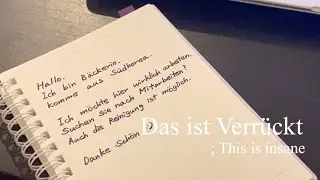 Hallo.
Ich bin Bäckerin.
komme aus Südkorea.
Ich möchte hier wirklich arbeiten.
Suchen sie nach Mitarbeiten?
Auch die Reinigung ist möglich.
Danke Schön :)
Das ist Verrückt
; This is insane